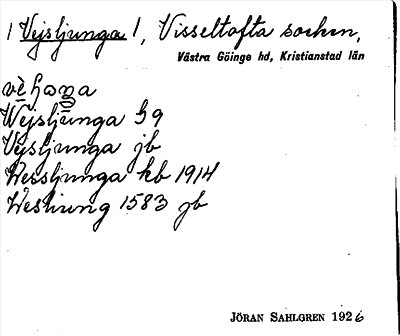 / Vejsljunga /, Visseltofta socken,
Västra Göinge hd, Kristianstad län
Wejsljunga G 9
Vejsljunga jb
Wessljunga kb 1914
Weshiung 1583 jb
JÖRAN SAHLGREN 1926